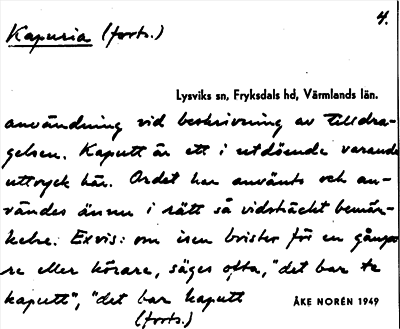 4.
Kapuria (forts.)
Lysviks sn, Fryksdals hd, Värmlands län.
användning vid beskrivning av tilldra-
gelsen. Kaputt är ett i utdöende varande
uttryck här. Ordet har använts och an-
vändes ännu i rätt så vidsträckt bemär-
kelse. Exvis: om isen brister för en gångea
re eller körare, säges ofta, "det bar te
kaputt", "det bar kaputt
ÅKE NORÉN 1949
(forts.)